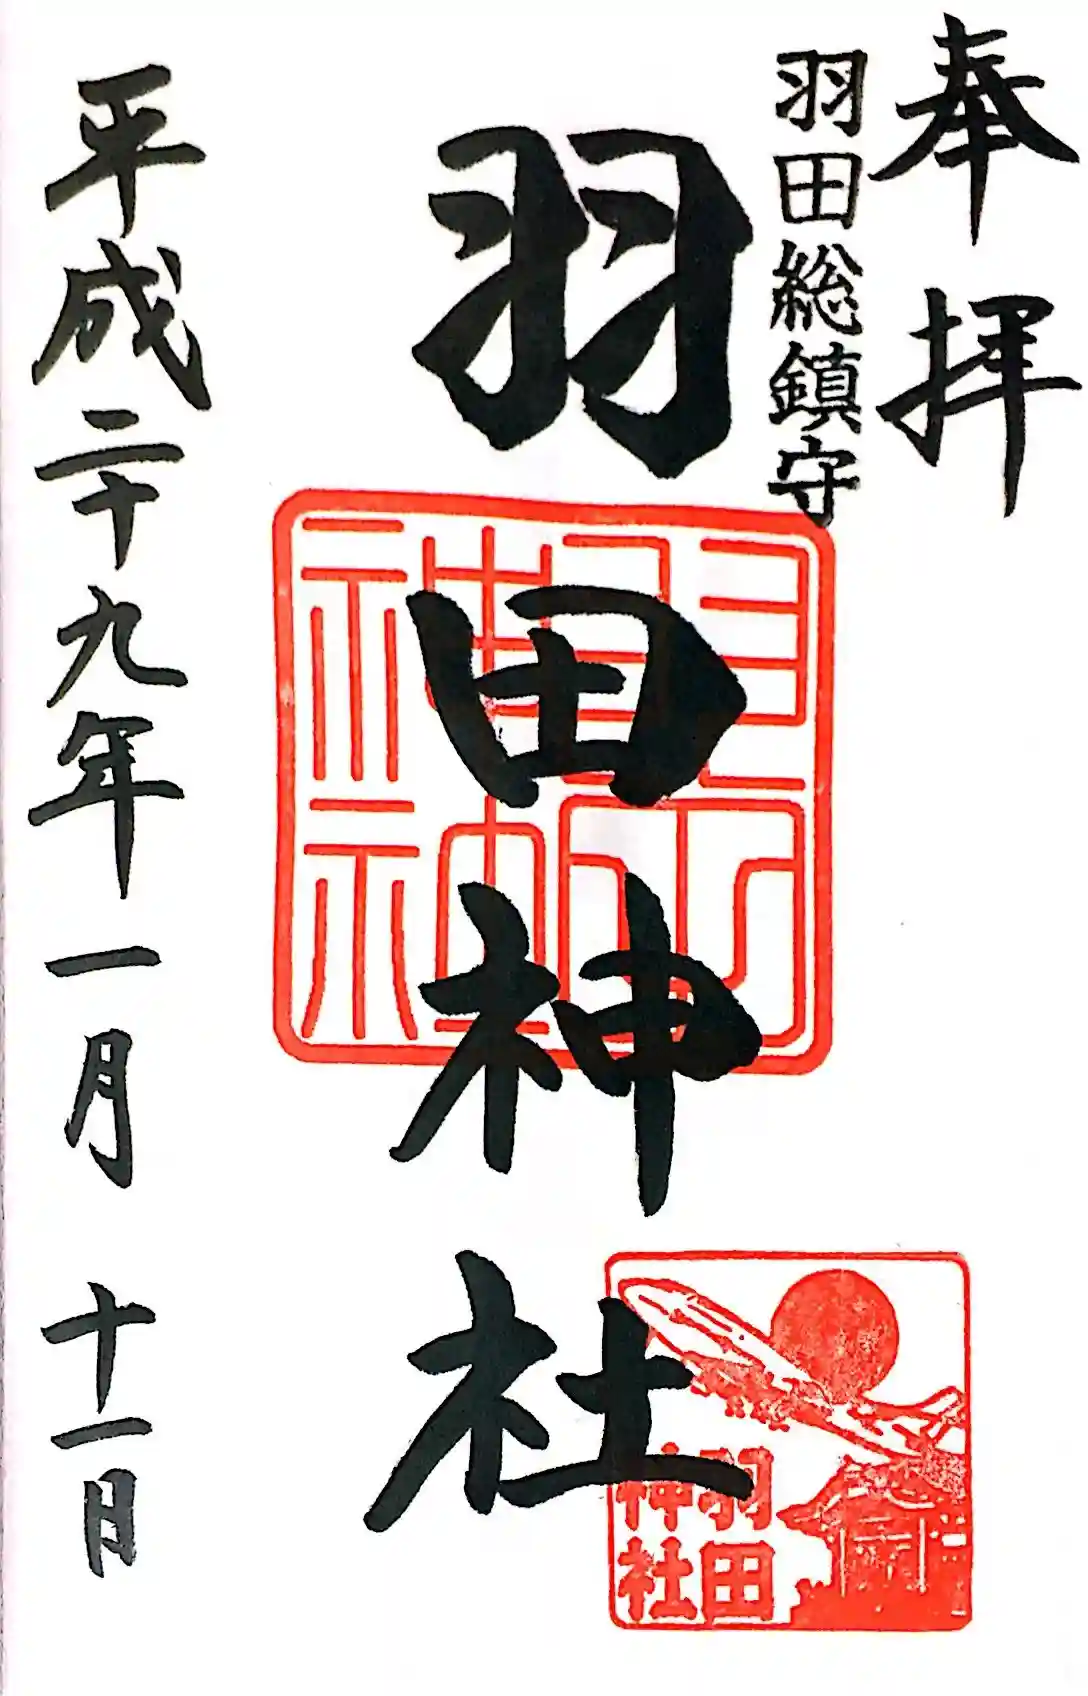 奉拝
羽田総鎮守
羽田神社
羽田
神社
平成二十九年一月十一日